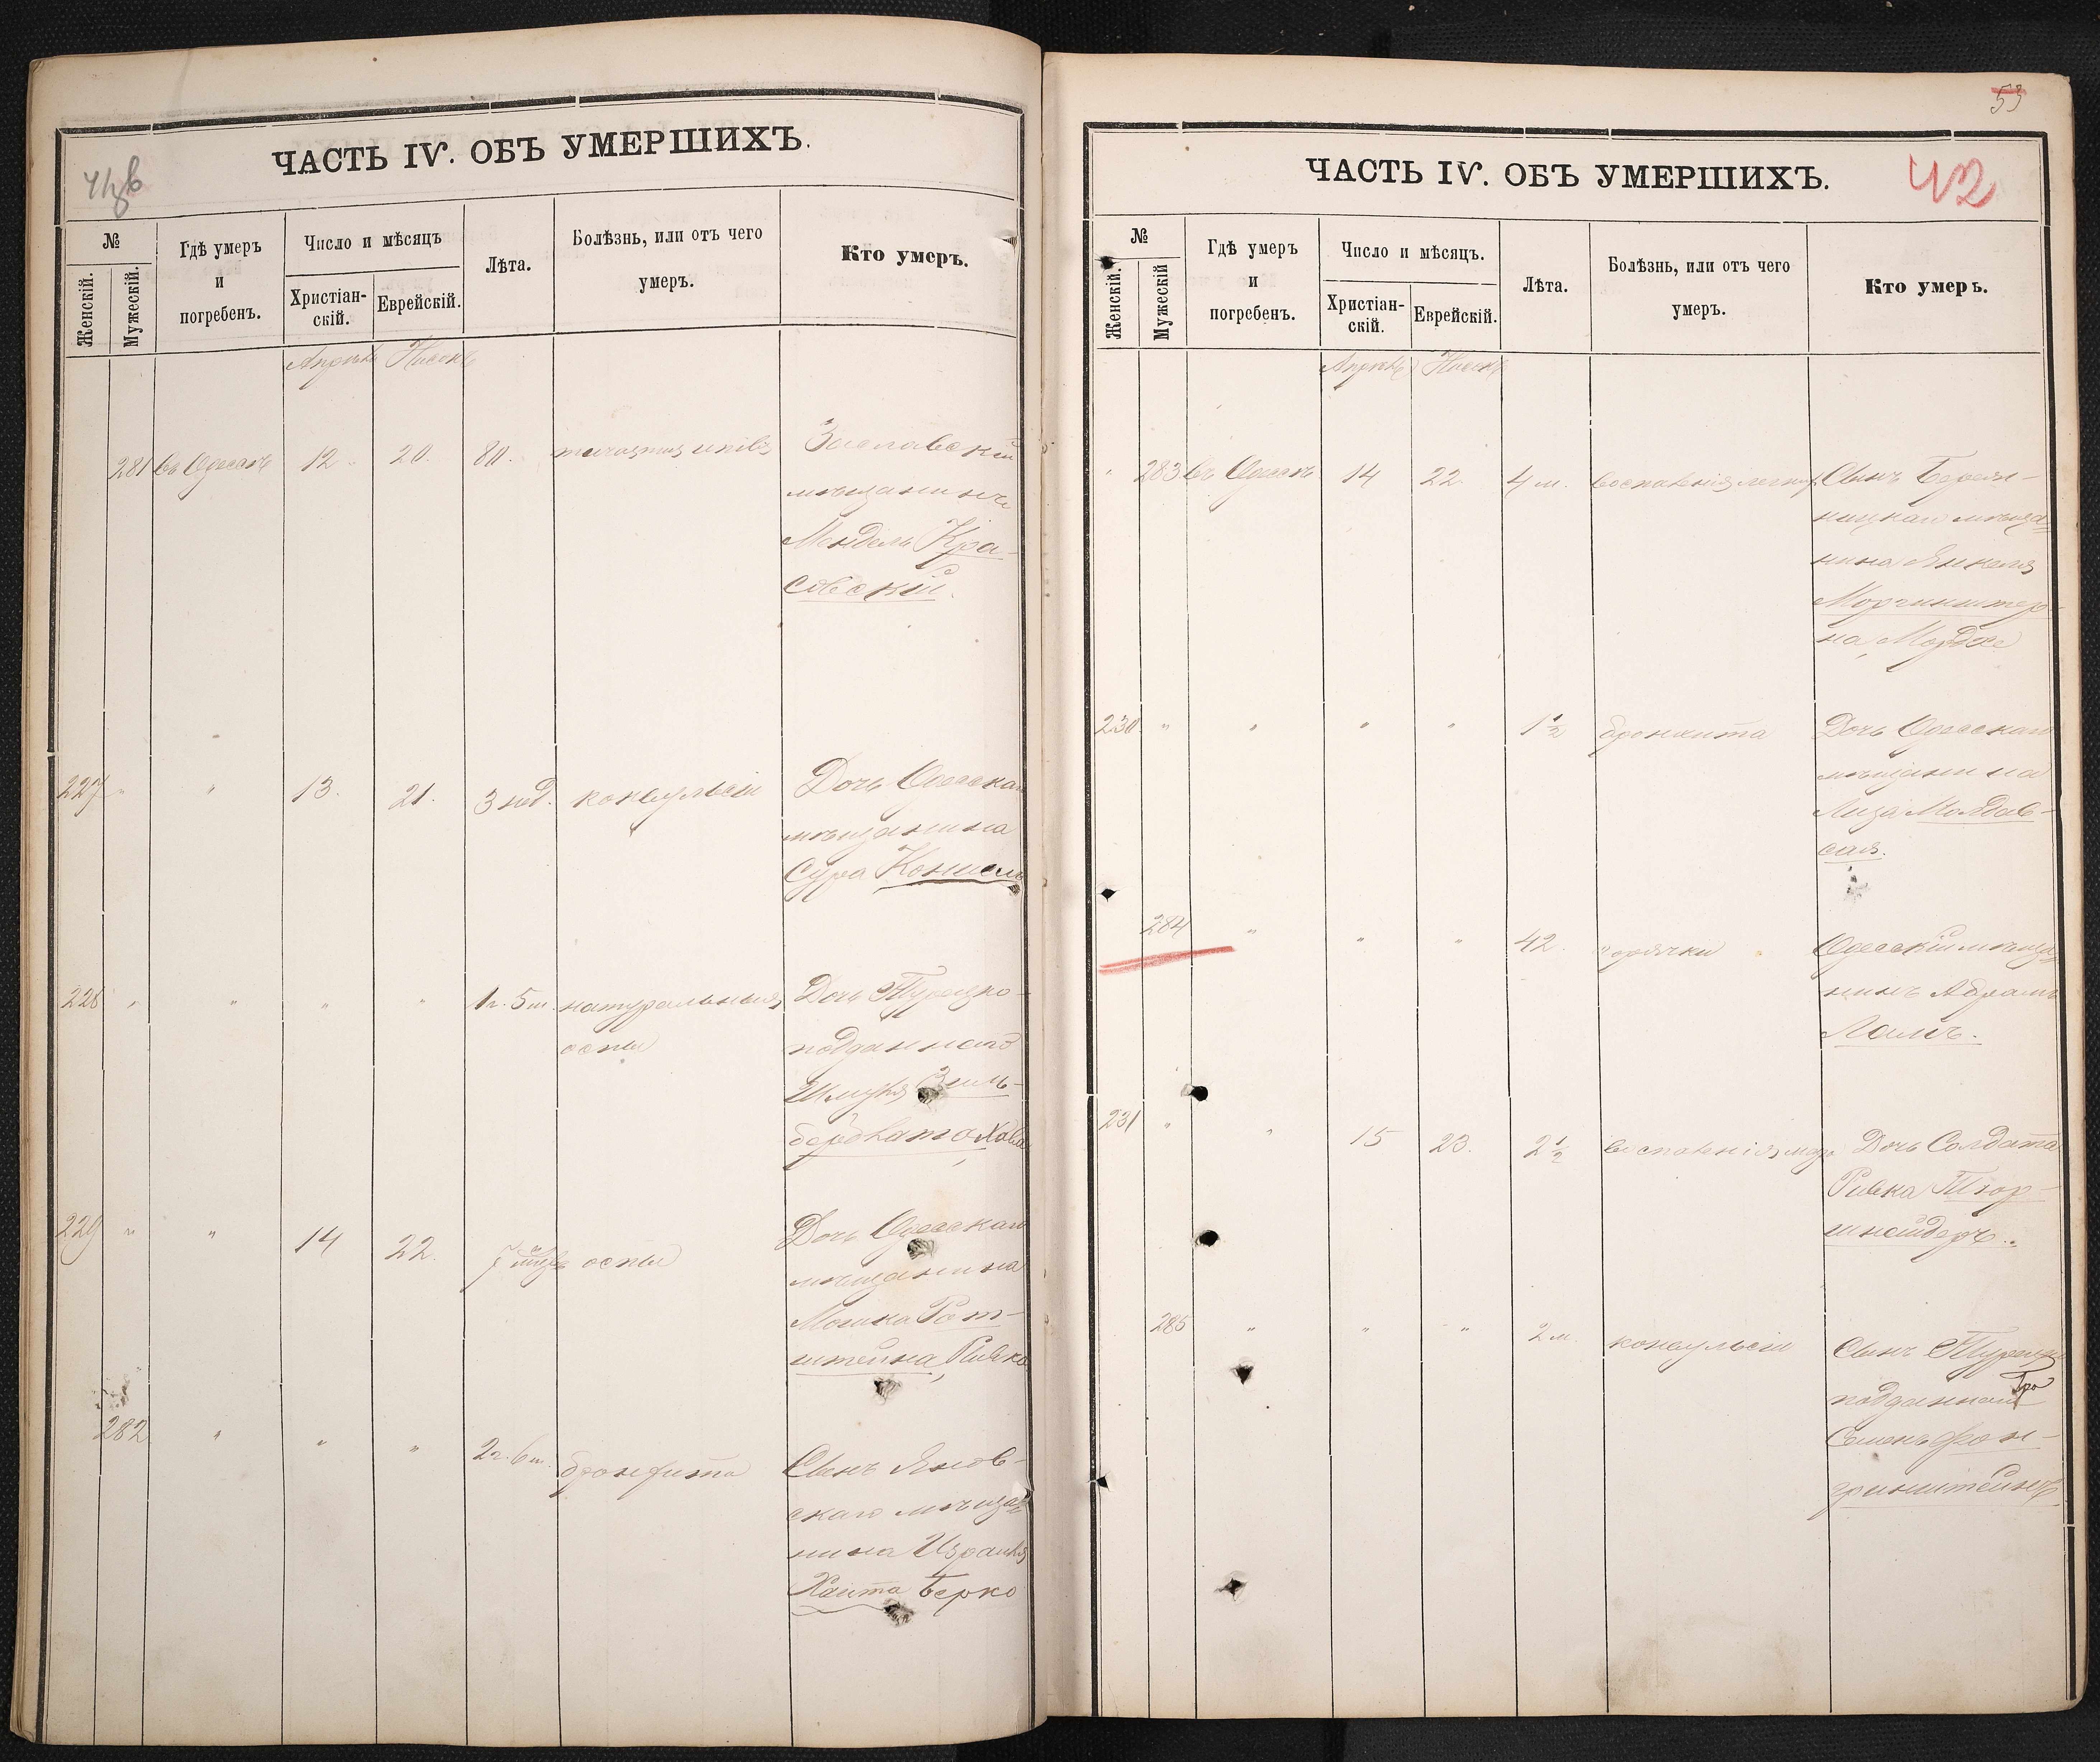 ЧАСТЬ IV. ОБЪ УМЕРШИХЪ.
№
Женскій.
Мужескій.
Гдѣ умеръ
и
погребенъ.
Число и мѣсяцъ
Христіан-
скій.
Еврейскій.
Лѣта.
Болѣзнь, или отъ чего
умеръ.
Кто умеръ.
Апрѣль Нисонъ
281 въ Одессѣ 12 20. 80. Заславскій
мѣщанинъ
Мендель Кра-
совскій.
227 " " 13. 21. 3 нед. конвульсіи Дочь Одесскаго
мѣщанина
Сура
228 " " " " 1 г. 5 м. натуральныя Дочь Турецко-
оспы подданнаго
Шмуля Зиль-
229 " " 14 22. 7 оспы Дочь Одесскаго
мѣщанина
Мошка Рот-
штейна, Ривка
282 " " " 2 г. 6 м. бронхита Сынъ Янов-
скаго мѣща-
нина Израиля
Хаита Берко
53
ЧАСТЬ IV. ОБЪ УМЕРШИХЪ.
42
№
Женскій.
Мужескій
Гдѣ умеръ
и
погребенъ.
Число и мѣсяцъ.
Христіан-
скій.
Еврейскій.
Лѣта.
Болѣзнь, или отъ чего
умеръ.
Кто умеръ.
Апрѣль Нисонъ
" 283 въ Одессѣ 14 22. 4 м. воспаленія легк. Сынъ
мѣща-
нина Янкеля
Моргинштер-
на, Мордхе
230. " " " " 1½ бронхита Дочь Одесскаго
мѣщанина
Лиза Молдав-
сая.
284 " " " 42. горячки Одесскій мѣща-
нинъ Абрамъ
231 " " 15 23. 2½ воспаленія мозг. Дочь Солдата
Ривка Тюр-
шнейдеръ.
285 " " " 2 м. конвульсіи Сынъ Турецко
подданнаго
Семенъ Фон-